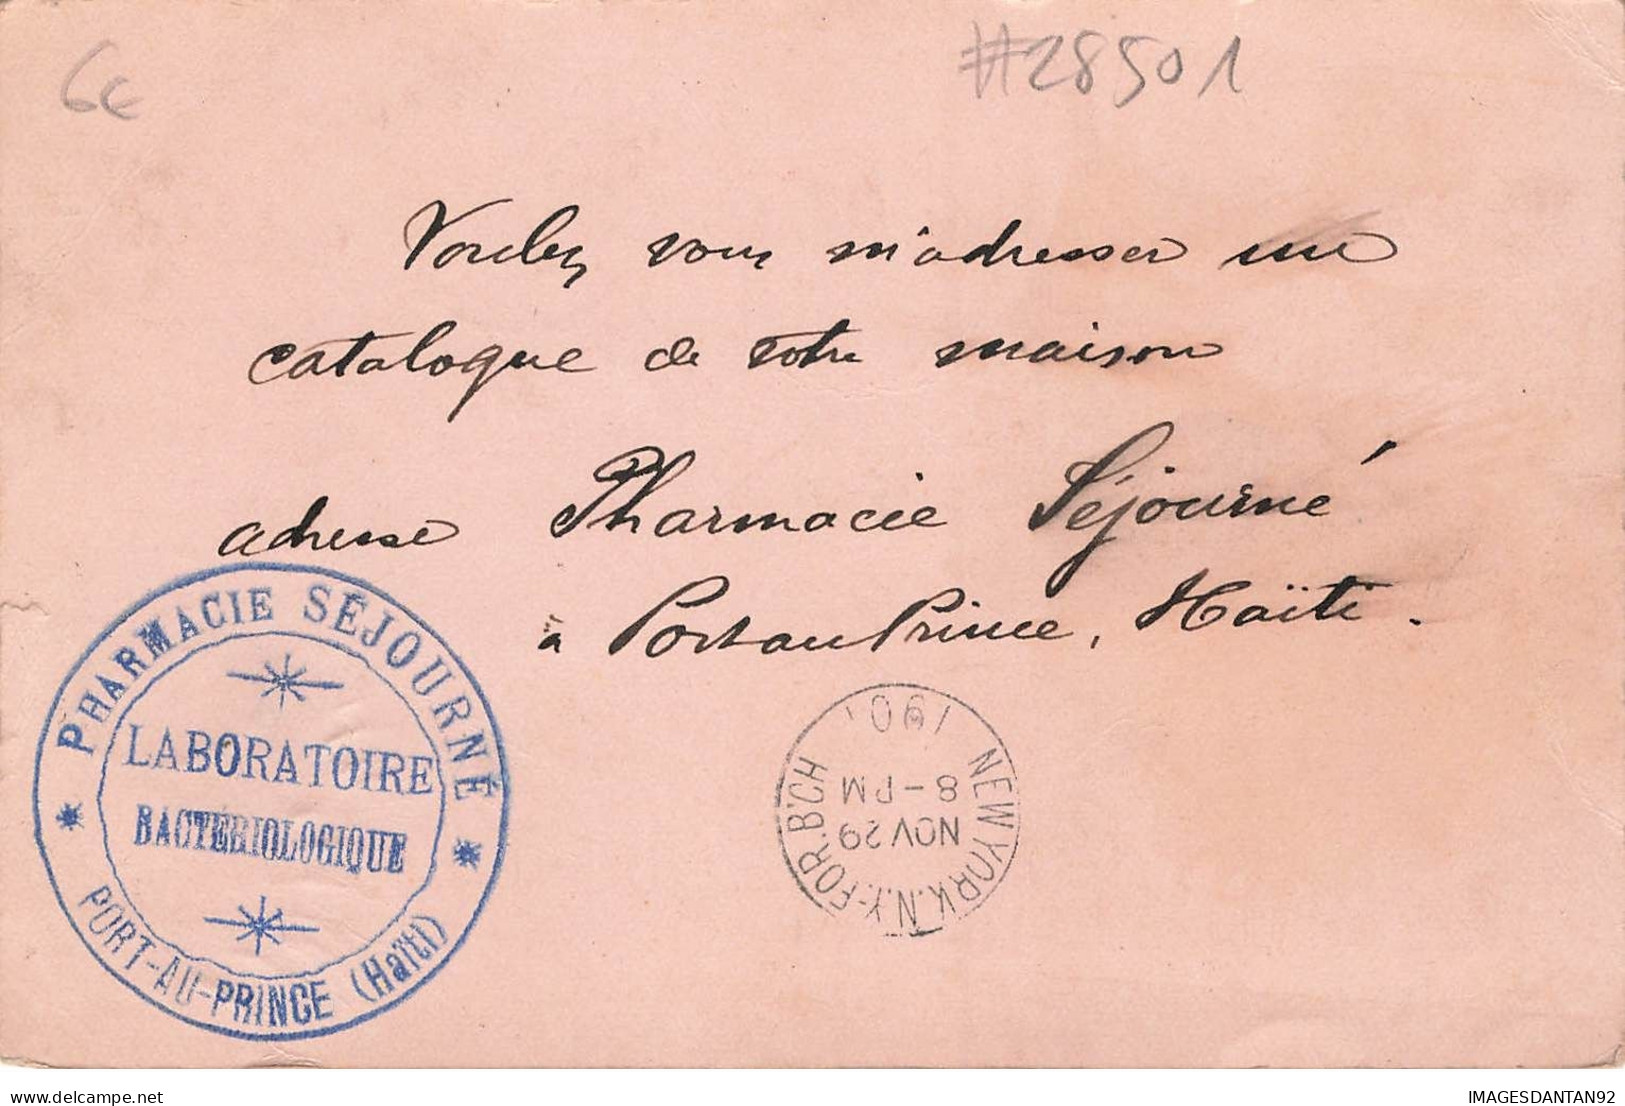 6€
#28501
Voulez vous m'adresser une
catalogue de votre maison
adresse Pharmacie Séjourné
à Port au Prince, Haïti.
PHARMACIE SÉJOURNÉ
LABORATOIRE
BACTÉRIOLOGIQUE
PORT-AU-PRINCE (Haïti)
NEW YORK.N.Y-FOR.B'CH
NOV 29
8-PM
190
delcampe.net
IMAGESDANTAN92